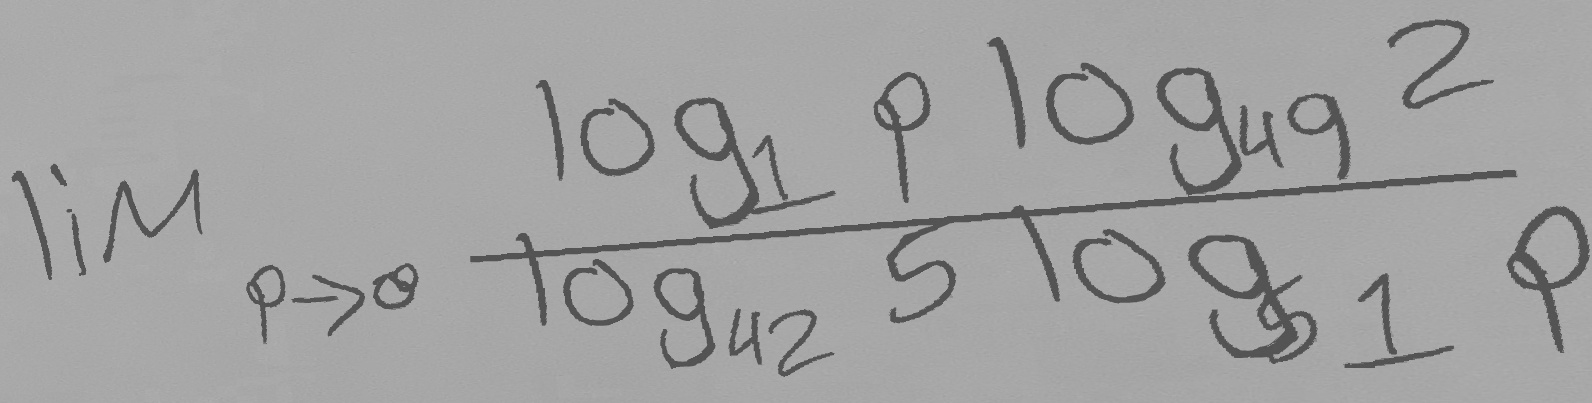 lim p→0 log₁ p log₄₉ 2 / log₄₂ 5 log₅₁ p